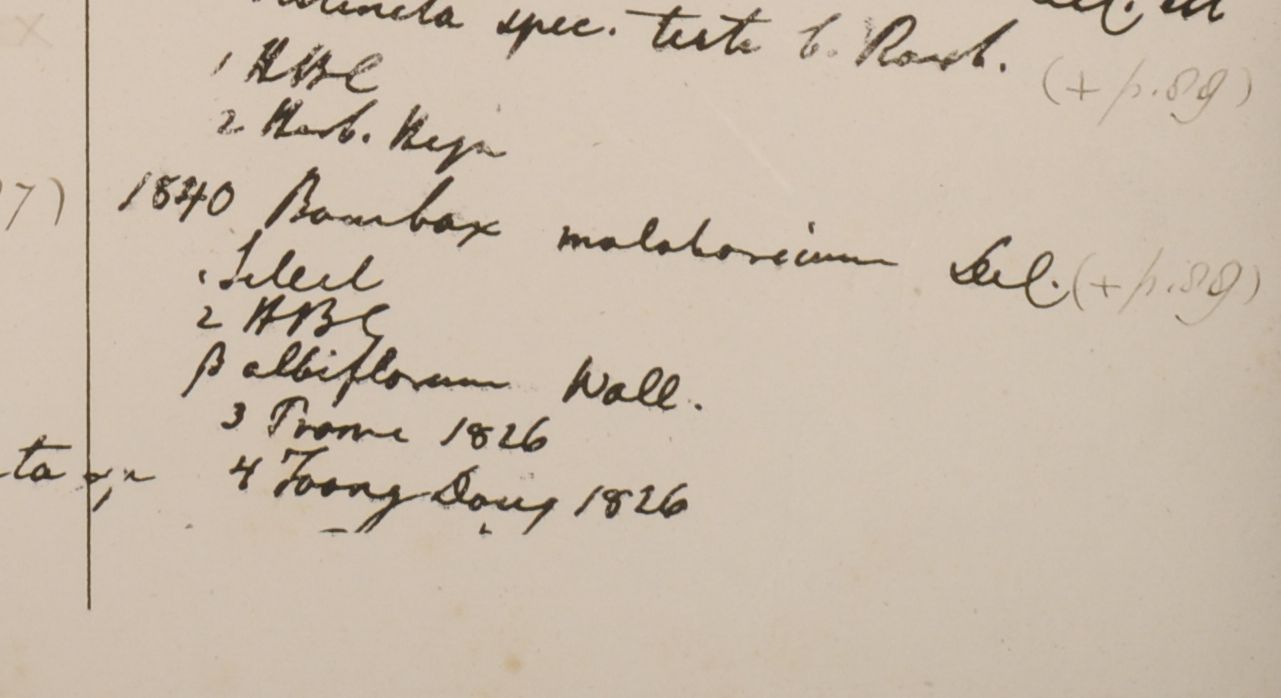 distincta spec. teste C. Roxb.
(+ p. 89)
1 HBC
2 Herb. Heyn
7) 1840 Bombax malabaricum Del. (+ p. 89)
1 Silect
2 HBC
β albiflorum Wall.
3 Prome 1826
4 Toong Dong 1826